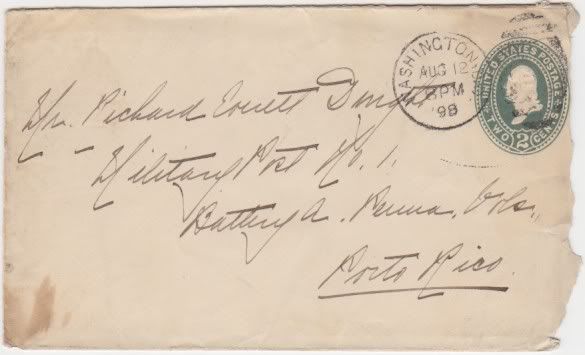 WASHINGTON
AUG 12
8 PM
98
UNITED STATES POSTAGE
TWO 2 CENTS
Mr. Richard Everett
Military Post No. 1.
Battery A. Penna. Vols.,
Porto Rico.